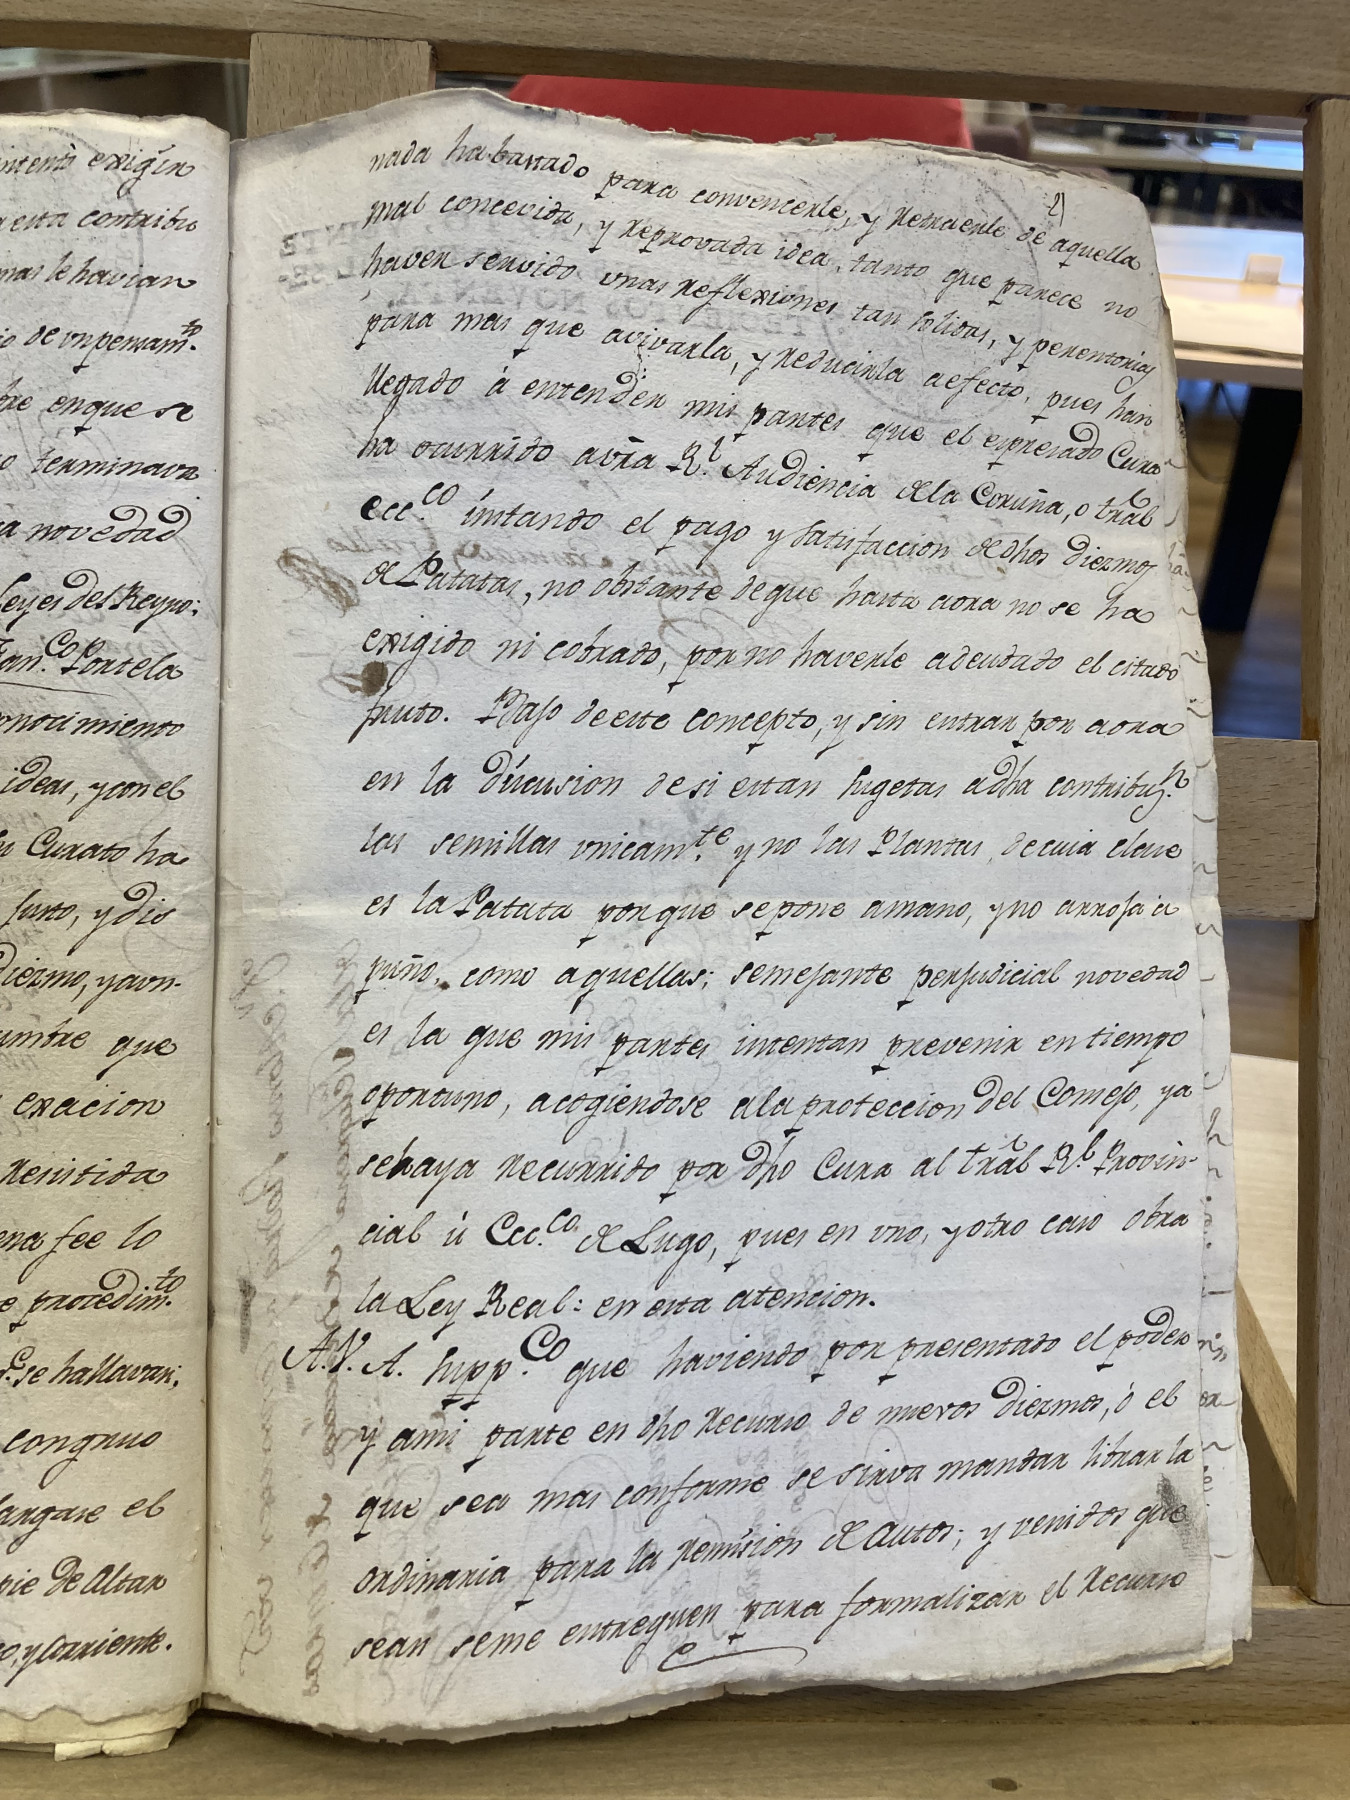 intentò exigir
esta contribu
mas le havian
de un pensam.to
bre enque se
terminava
novedad
Leyes del Reyno:
Fran.co Portela
onocimiento
ideas, y con el
Curato ha
susto, y dis
Diezmo, y aun-
umbre que
exacion
Remitida
ena fee lo
e procedim.to
se hallavan;
congruo
largase el
pie de Altar
o, y corriente.
2)
nada ha bastado para convencerle, y Retraerle de aquella
mal concevida, y Reprovada idea, tanto que parece no
haver servido unas Reflexiones tan solidas, y perentorias
para mas que avivarla, y Reducirla aefecto, pues han
llegado á entender mis partes que el expresado Cura
ha ocurrido avrã R.l Audiencia de la Coruña, o tral
ecc.co instando el pago y satisfaccion de dhos diezmos
de Patatas, no obstante de que hasta aora no se ha
exigido ni cobrado, por no haverle adeudado el citado
fruto. Bajo de este concepto, y sin entrar por aora
en la discusion de si estan sugetas adha contribuz.n
las semillas unicam.te y no las Plantas, de cuia clase
es la Patata porque se pone amano, y no arroja á
puño, como aquellas; semejante perjudicial novedad
es la que mis partes intentan prevenir en tiempo
oportuno, acogiendose ala proteccion del Consejo, ya
sehaya Recurrido por dho Cura al tral R.l Provin-
cial ú Ecc.co de Lugo, pues en uno, y otro caso obra
la Ley Real: en esta atencion.
A.V. A. supp.co que haviendo por presentado el poder
y ami parte en dho Recurso de nuevos diezmos, ó el
que sea mas conforme se sirva mandar librar la
ordinaria para la Remision de autos; y venidos que
sean seme entreguen para formalizar el Recurso